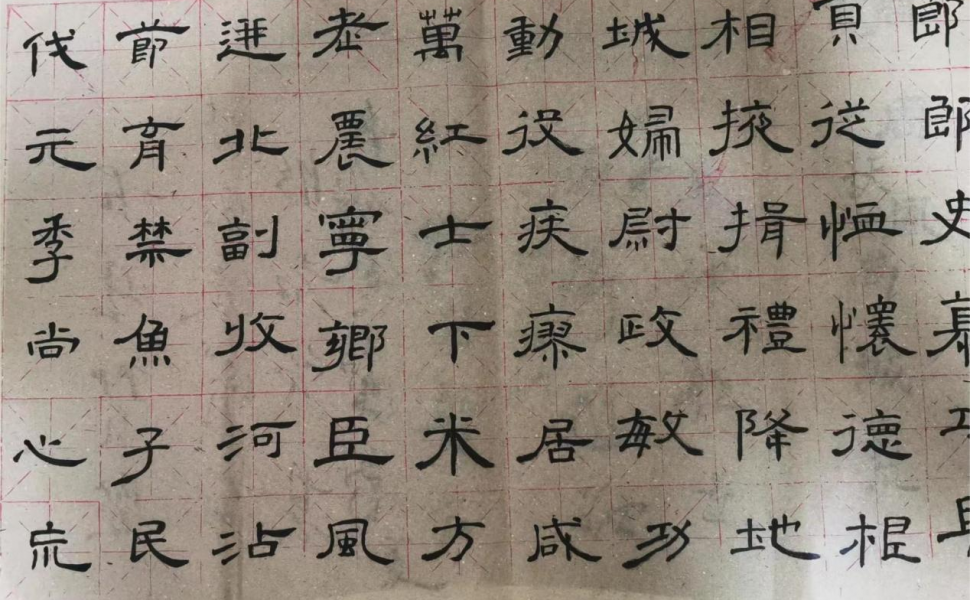 郎郎史慕
從恤懷德根
相掖揖禮降地
城婦尉政敏功
動役疾療居咸
萬紅士下米方
老農寧鄉臣風
北副收河沾
節育禁魚子民
伐元季尚心